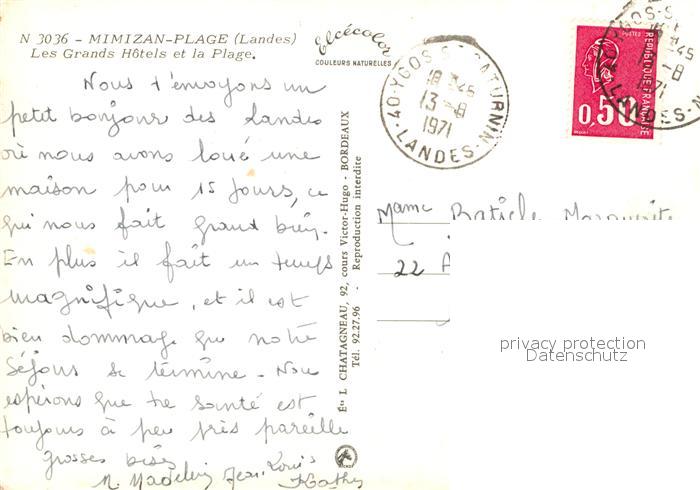 N 3036 - MIMIZAN-PLAGE (Landes)
Les Grands Hôtels et la Plage.
Elcécolor
COULEURS NATURELLES
Nous t'envoyons un
petit bonjour des Landes
où nous avons loué une
maison pour 15 jours, ce
qui nous fait grand bien.
En plus il fait un temps
magnifique, et il est
bien dommage que notre
séjour se termine. Nous
espérons que ta santé est
toujours à peu près pareille
Grosses bises
M. Madeleine Jean.Louis
Kathy
Éts L CHATAGNEAU, 92, cours Victor-Hugo - BORDEAUX
Tél. 92.27.96 - Reproduction interdite
40-YGOS-S-SATURNIN
18 H 45
13 -8
1971
LANDES
POSTES
REPUBLIQUE FRANCAISE
0,50
40-YGOS-S
45
13 -8
1971
LANDES
Mame
22
privacy protection
Datenschutz